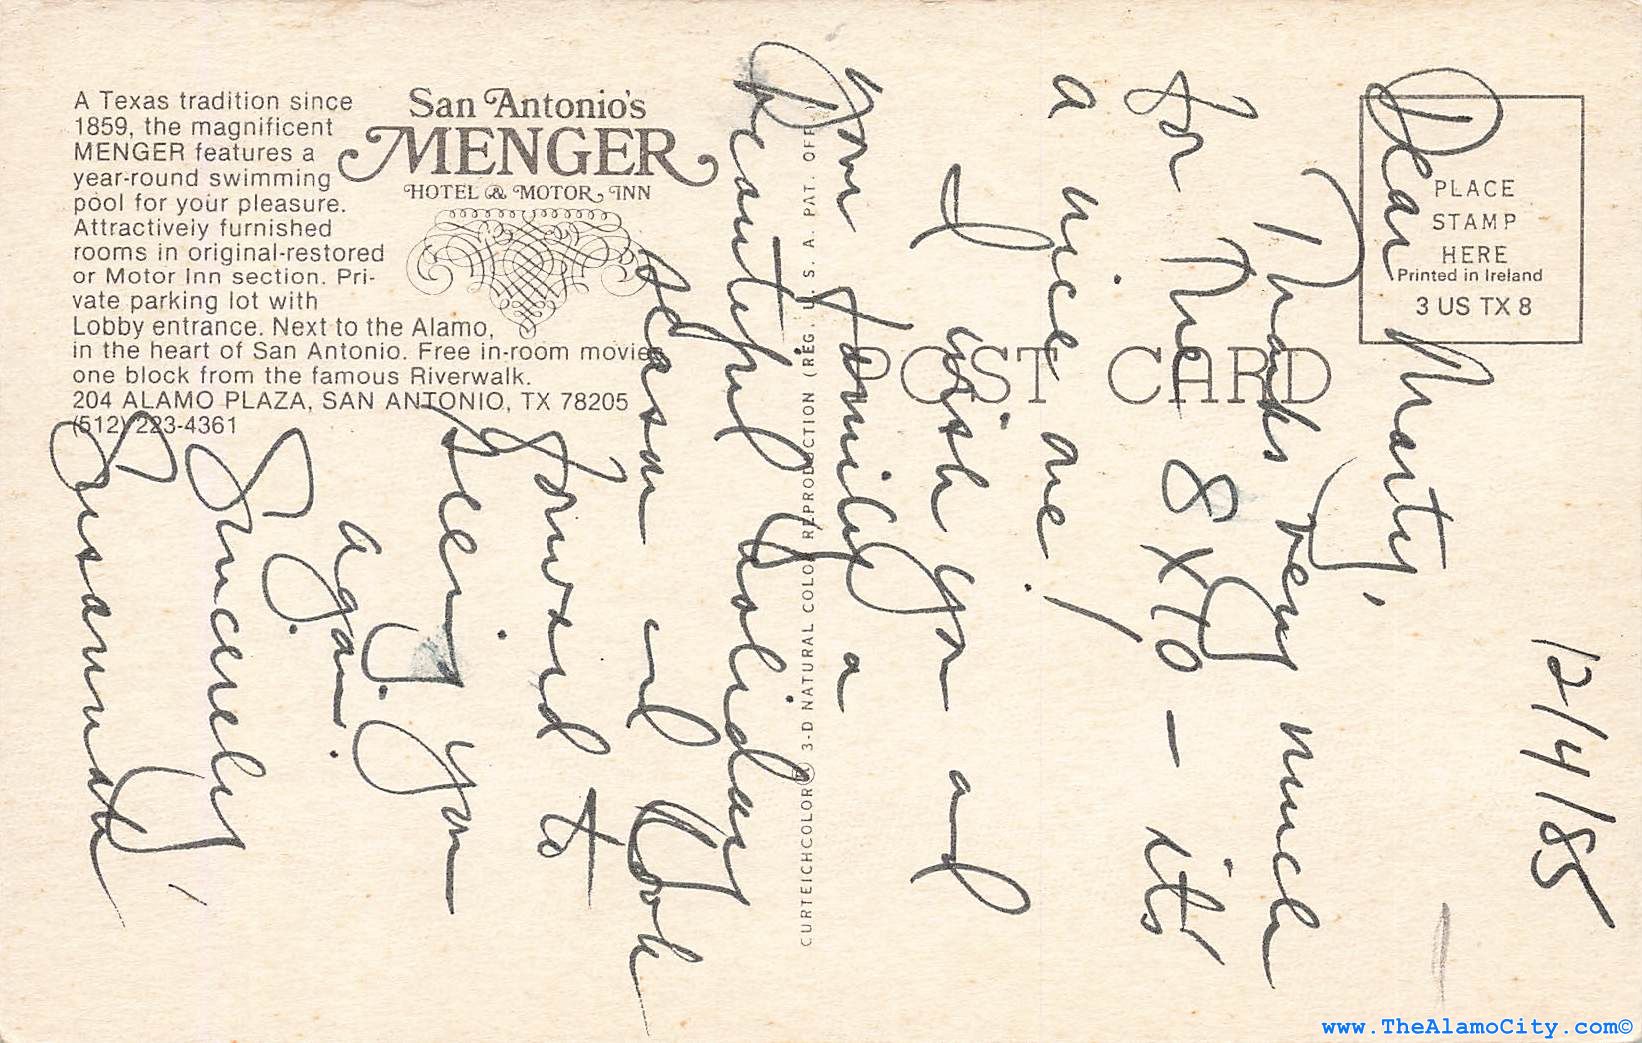 A Texas tradition since
1859, the magnificent
MENGER features a
year-round swimming
pool for your pleasure.
Attractively furnished
rooms in original-restored
or Motor Inn section. Pri-
vate parking lot with
Lobby entrance. Next to the Alamo,
in the heart of San Antonio. Free in-room movies
one block from the famous Riverwalk.
204 ALAMO PLAZA, SAN ANTONIO, TX 78205
(512) 223-4361
San Antonio's
MENGER
HOTEL & MOTOR INN
CURTEICHCOLOR® 3-D NATURAL COLOR REPRODUCTION (REG. U. S. A. PAT. OFF.)
POST CARD
PLACE
STAMP
HERE
Printed in Ireland
3 US TX 8
12/4/85
Dear Marty,
Thanks very much
for The 8 x 10 – it's
a nice one!
I wish you and
your family a
beautiful holiday
season and look
forward to
seeing you
again.
Sincerely,
Susannah
www.TheAlamoCity.com©